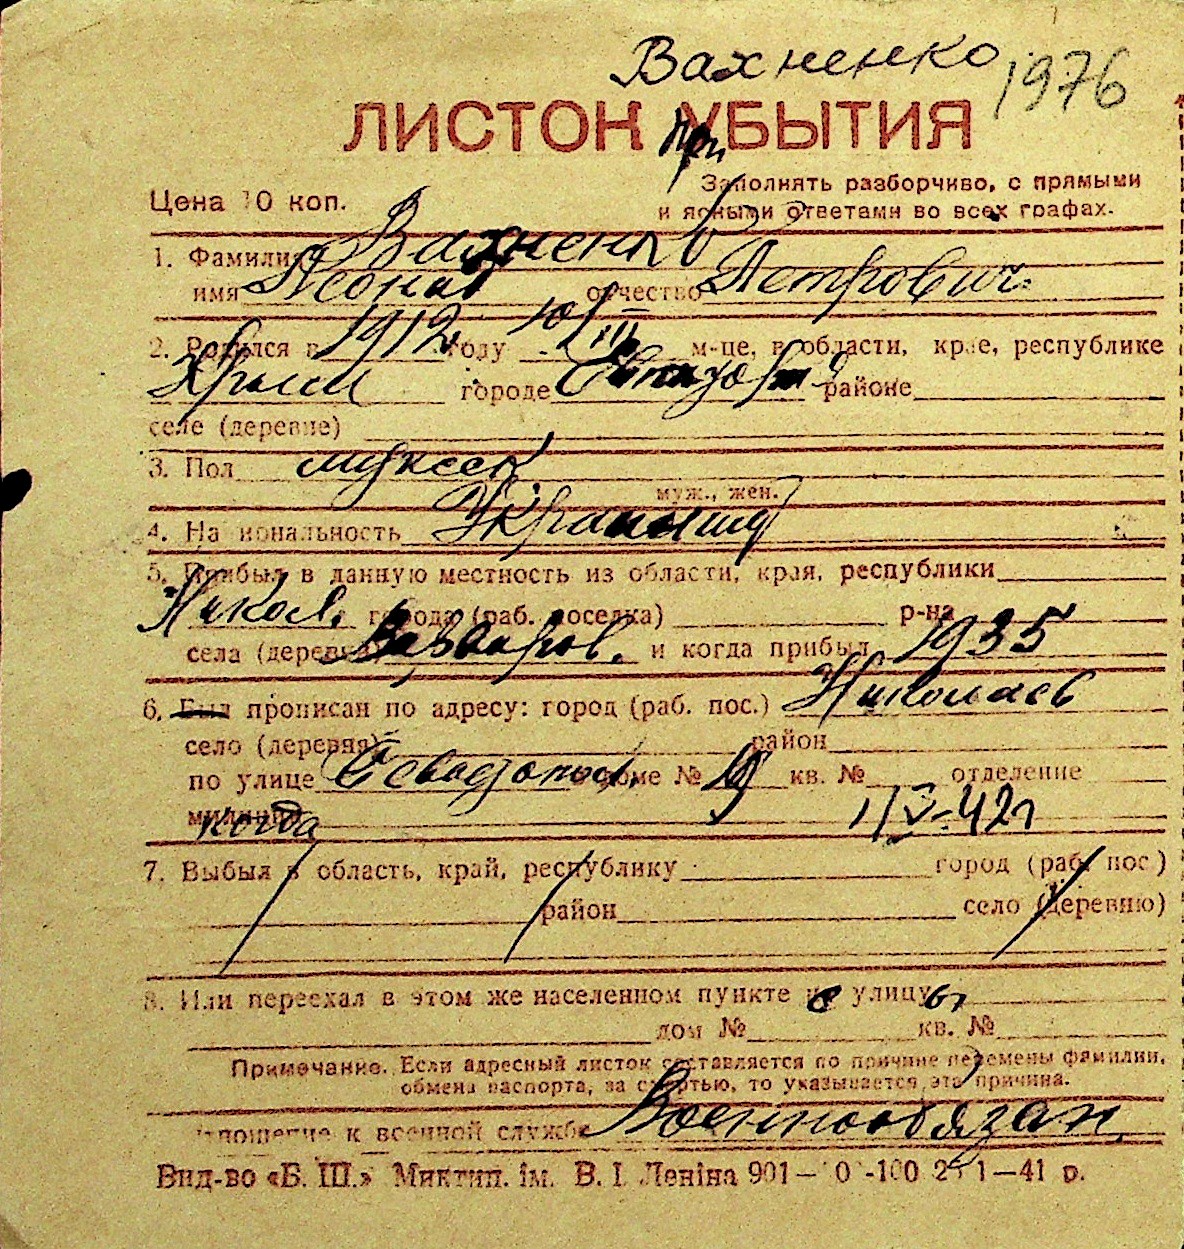 Вахненко 1976
ЛИСТОК При УБЫТИЯ
Цена 10 коп.
Заполнять разборчиво, с прямыми
и ясными ответами во всех графах.
1. Фамилия Вахненко
имя Леонид отчество Петрович
2. Родился в 1912 году 10/III м-це, в области, крае, республике
Крым городе Евпатория районе
селе (деревне)
3. Пол мужской
муж., жен.
4. Национальность Украинец
5. Прибыл в данную местность из области, края, республики
Никол. города (раб. поселка) р-на
села (деревни) и когда прибыл 1935
6. Был прописан по адресу: город (раб. пос.) Николаев
село (деревня) район
по улице Севастопол. доме № 9 кв. № отделение
милиции когда 1/V-42г
7. Выбыл в область, край, республику город (раб. пос.)
район село (деревню)
8. Или переехал в этом же населенном пункте на улицу
дом № кв. №
Примечание. Если адресный листок составляется по причине перемены фамилии,
обмена паспорта, за смертью, то указывается эта причина.
Отношение к военной службе Военнообязан.
Вид-во «Б. Ш.» Миктип. ім. В. І. Леніна 901— -100 1—41 р.